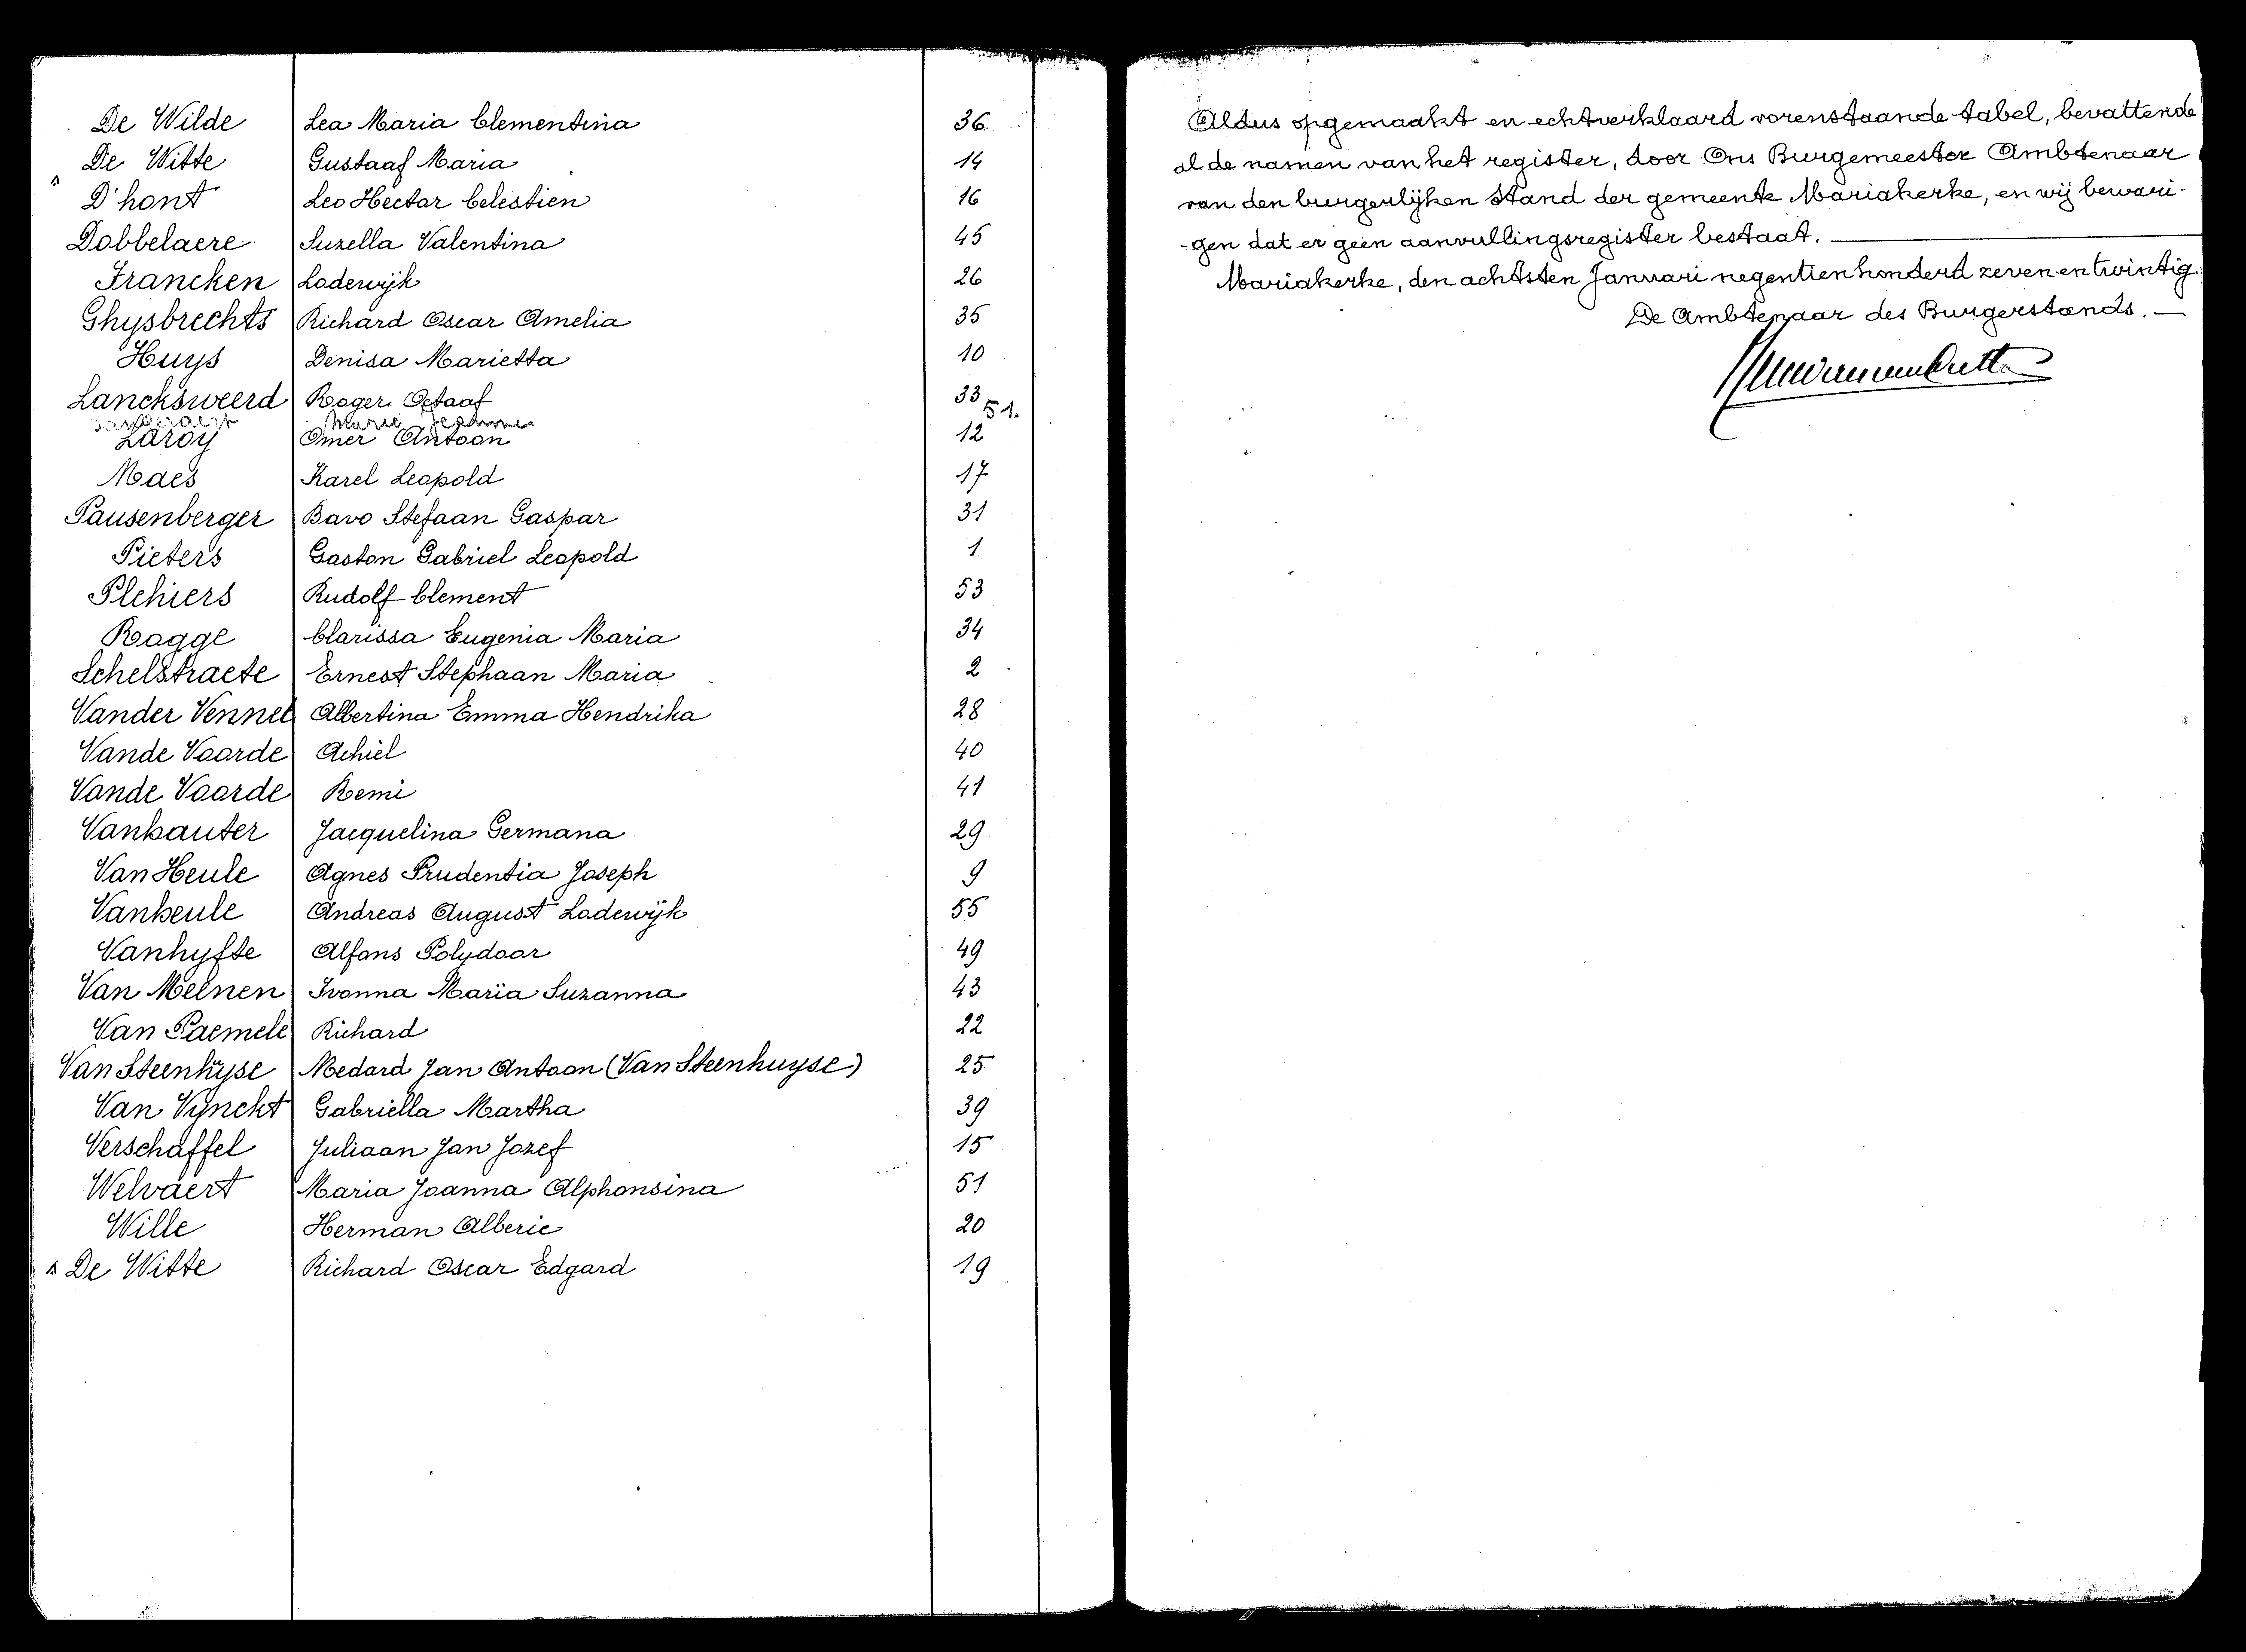 De Wilde Lea Maria Clementina 36
De Witte Gustaaf Maria 14
D'hont Leo Hector Celestien 16
Dobbelaere Suzella Valentina 45
Francken Lodewijk 26
Ghysbrechts Richard Oscar Amelia 35
Huys Denisa Marietta 10
Lancksweerd Roger Octaaf 33
Marie Jeanne 51.
Laroy Omer Antoon 12
Maes Karel Leopold 17
Pausenberger Bavo Stefaan Gaspar 31
Pieters Gaston Gabriel Leopold 1
Plehiers Rudolf Clement 53
Rogge Clarissa Eugenia Maria 34
Schelstraete Ernest Stephaan Maria 2
Vander Vennet Albertina Emma Hendrika 28
Vande Voorde Achiel 40
Vande Voorde Remi 41
Vanhauter Jacquelina Germana 29
Van Heule Agnes Prudentia Joseph 9
Vanheule Andreas August Lodewijk 55
Vanhyfte Alfons Polydoor 49
Van Meenen Ivonna Maria Suzanna 43
Van Paemele Richard 22
Van Steenhÿse Medard Jan Antoon (Van Steenhuyse) 25
Van Vynckt Gabriella Martha 39
Verschaffel Juliaan Jan Jozef 15
Welvaert Maria Joanna Alphonsina 51
Wille Herman Alberic 20
De Witte Richard Oscar Edgard 19
Aldus opgemaakt en echtverklaard vorenstaande tabel, bevattende
al de namen van het register, door Ons Burgemeester Ambtenaar
van den burgerlijken Stand der gemeente Mariakerke, en wij bevari-
-gen dat er geen aanvullingsregister bestaat.
Mariakerke, den achtsten Januari negentienhonderd zevenentwintig
De Ambtenaar des Burgerstands.